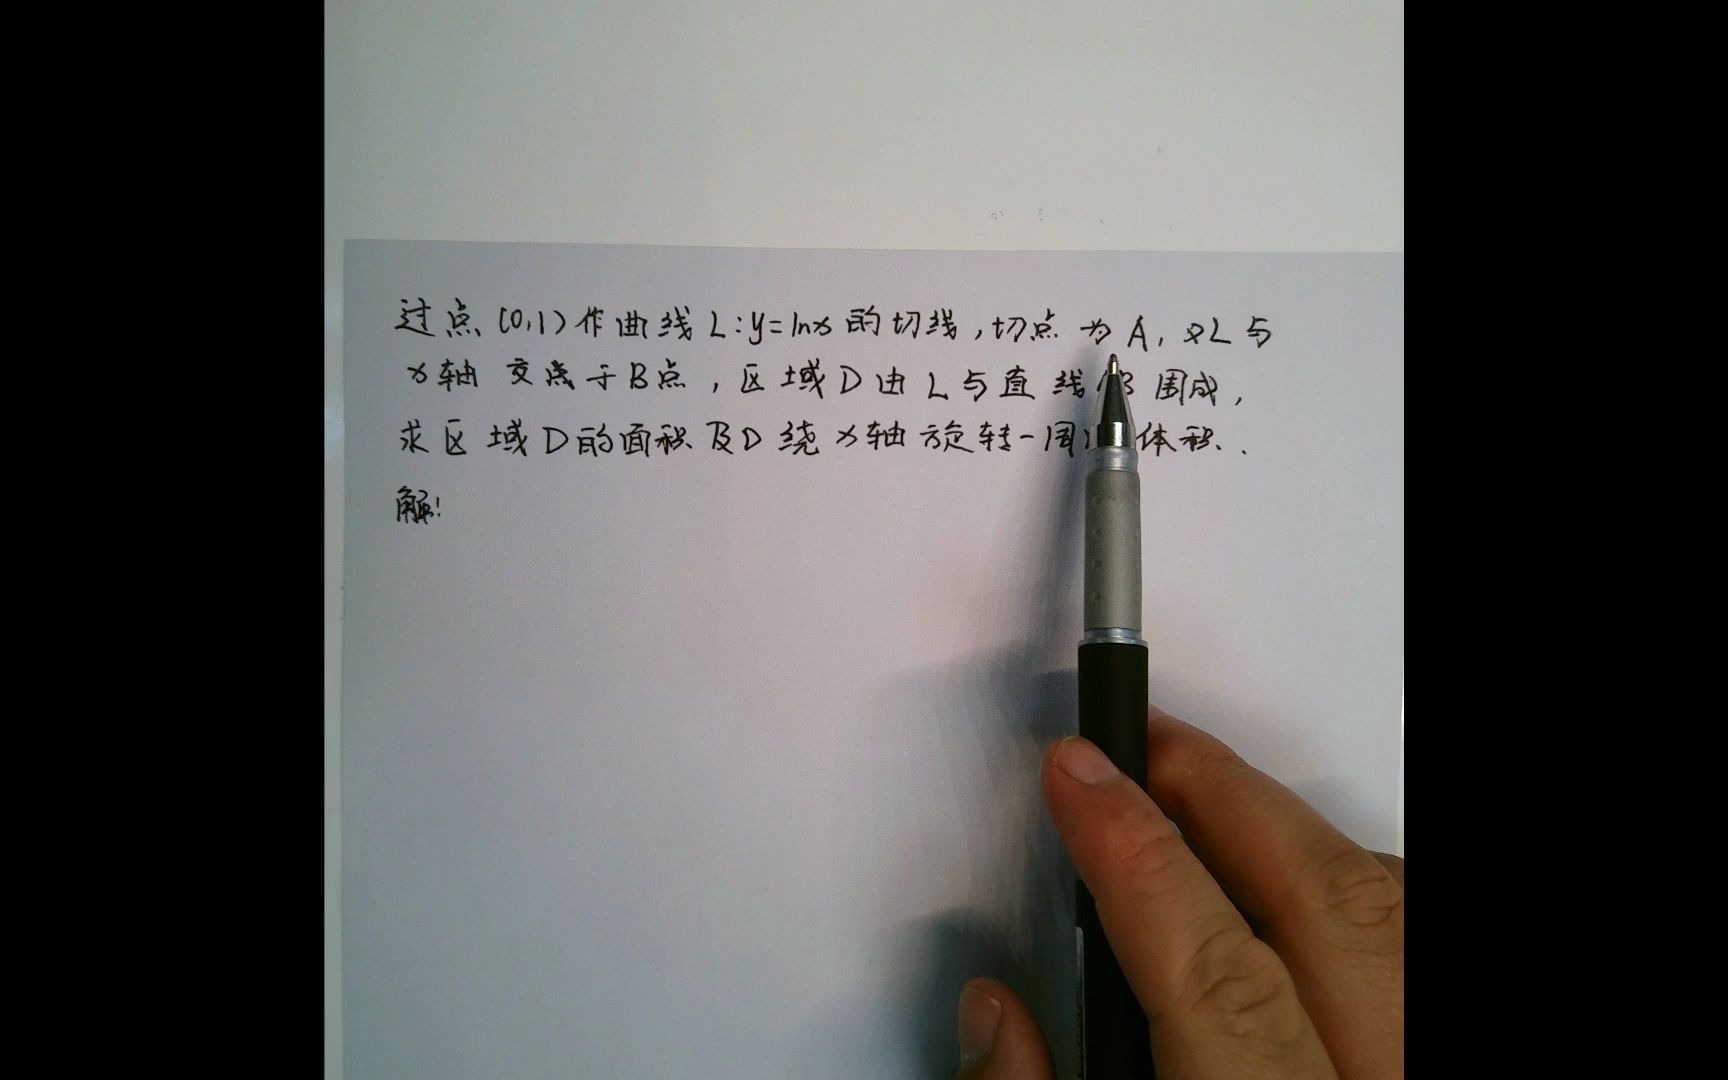 过点(0,1)作曲线L:y=lnx的切线,切点为A,又L与
x轴交点于B点,区域D由L与直线B围成,
求区域D的面积及D绕x轴旋转一周体积.
解: